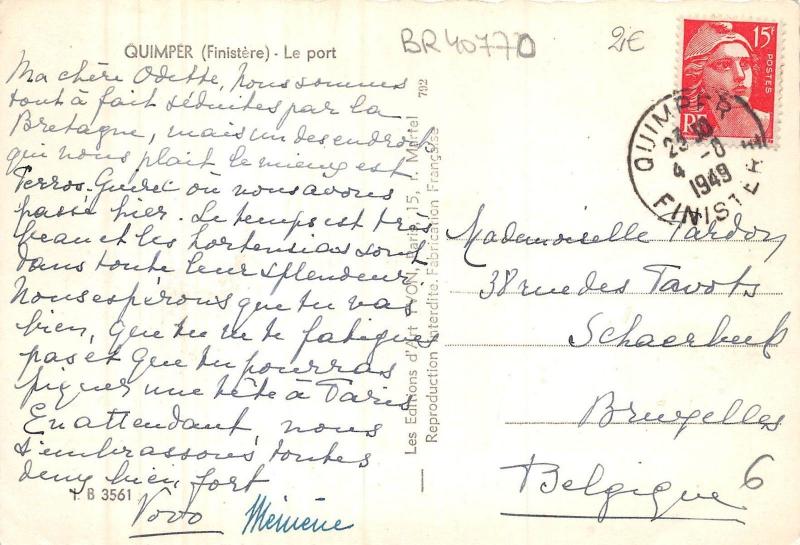 QUIMPER (Finistère) - Le port
BR40770
2€
15F
POSTES
RF
QUIMPER
23 30
4 -8
1949
FINISTERE
Ma chère Odette, Nous sommes
tout à fait séduites par la
Bretagne, mais un des endroits
qui nous plait le mieux est
Perros-Guirec où nous avons
passé hier. Le temps est très
beau et les hortensias sont
dans toute leur splendeur.
Nous espérons que tu vas
bien, que tu ne te fatigues
pas et que tu pourras
piquer une tête à Paris
En attendant nous
t'embrassons toutes
deux bien fort
Vovo Mémène
T. B 3561
Les Editions d'Art YVON, Paris, 15, r. Martel
Reproduction Interdite. Fabrication Française
792
Mademoiselle Tardon
38 rue des Pavots
Schaerbeek
Bruxelles
Belgique 6